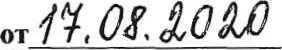 от 17.08.2020